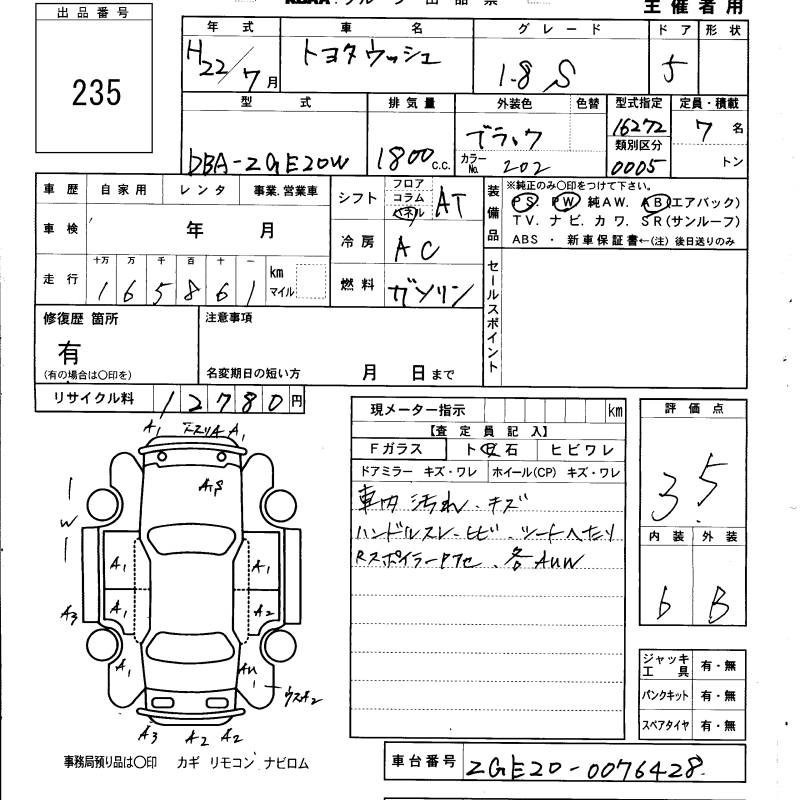 主催者用
出品番号
235
年式 車名 グレード ドア 形状
H22/7月 トヨタウッシュ 1.8 S 5
型式 排気量 外装色 色替 型式指定 定員・積載
DBA-ZGE20W 1800c.c. ブラック 16272 7名
カラーNo. 202 類別区分 0005 トン
車歴 自家用 レンタ 事業.営業車
シフト フロア コラム パネル AT
装備品
※純正のみ○印をつけて下さい。
PS. PW 純AW. AB(エアバック)
TV. ナビ. カワ. SR(サンルーフ)
ABS ・ 新車保証書←(注) 後日送りのみ
車検 年 月
冷房 AC
走行 十万 万 千 百 十 一
165861 km マイル
燃料 ガソリン
セールスポイント
修復歴 箇所
有
(有の場合は○印を)
注意事項
名変期日の短い方 月 日まで
リサイクル料 12780円
現メーター指示 km
【査定員記入】
Fガラス ト 石 ヒビワレ
ドアミラー キズ・ワレ ホイール(CP) キズ・ワレ
車内汚れ・キズ
ハンドルスレ・ヒビ・シートへたり
Rスポイラー 各AUW
評価点
3.5
内装 外装
b B
ジャッキ工具 有・無
パンクキット 有・無
スペアタイヤ 有・無
A1 A1
A1
W
A1 A1
A3 A1 A2
A1 AU
ウスA2
A3 A2 A2
事務局預り品は○印 カギ リモコン ナビロム
車台番号 ZGE20-0076428